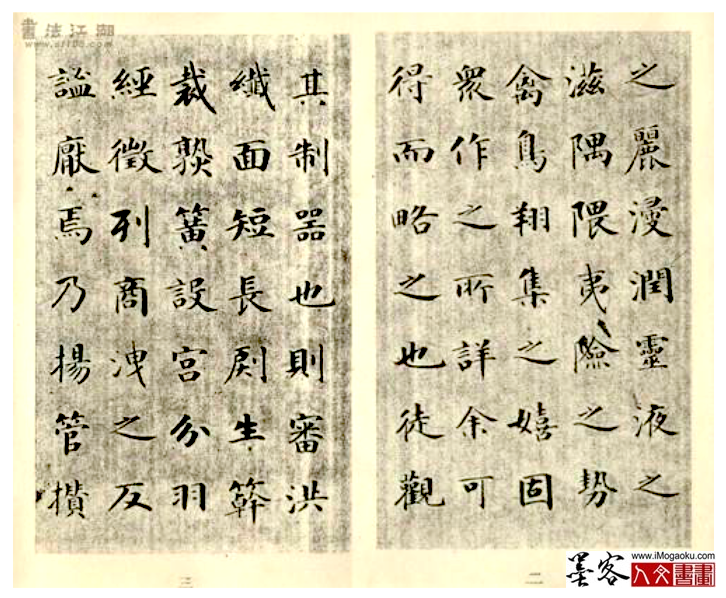 書法江湖
之麗浸潤靈液之
滋隅隈夷險之勢
禽鳥翔集之嬉固
衆作之所詳余可
得而略之也徒觀
二
其制器也則審洪
纖面短長剫生簳
裁熟簧設宮分羽
經徵列商洩之反
謐厭焉乃揚管攢
三
墨客
www.iMogaoku.com
人文書畫